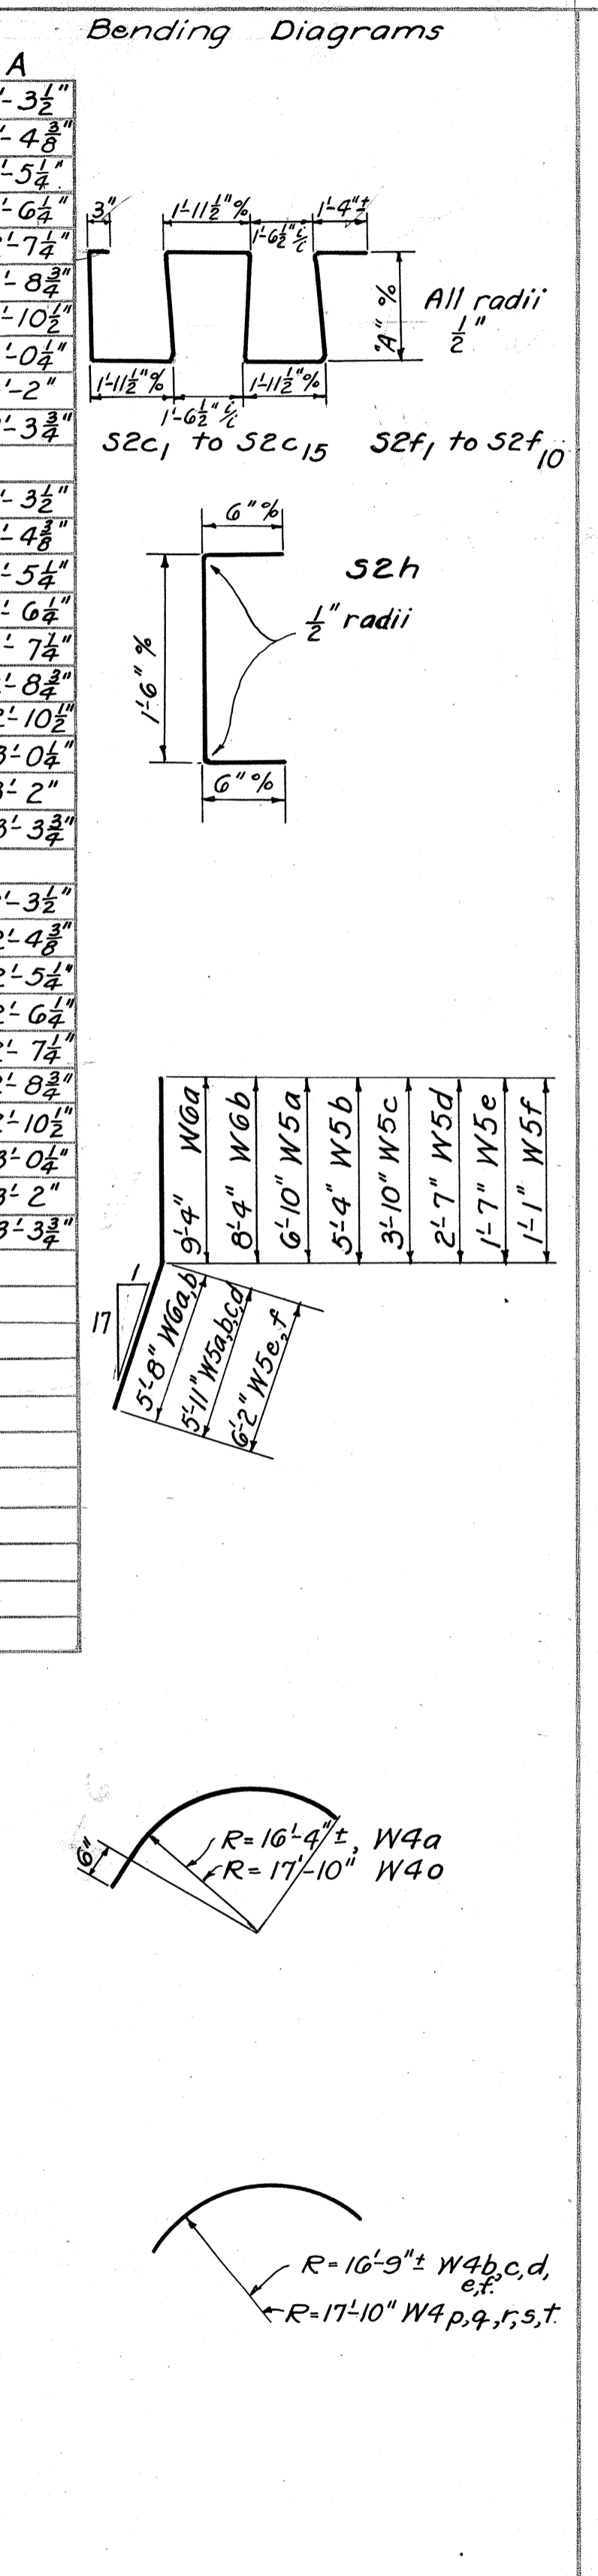 Bending Diagrams
A
'-3 1/2"
'-4 3/8"
'-5 1/4"
'-6 1/4"
'-7 1/4"
'-8 3/4"
'-10 1/2"
'-0 1/4"
'-2"
'-3 3/4"
'-3 1/2"
'-4 3/8"
'-5 1/4"
'-6 1/4"
'-7 1/4"
'-8 3/4"
2'-10 1/2"
3'-0 1/4"
3'-2"
3'-3 3/4"
'-3 1/2"
2'-4 3/8"
2'-5 1/4"
2'-6 1/4"
2'-7 1/4"
2'-8 3/4"
2'-10 1/2"
3'-0 1/4"
3'-2"
3'-3 3/4"
3"
1'-11 1/2" %
1'-6 1/2" i/i
1'-4" ±
"A" %
All radii
1/2"
1'-11 1/2" %
1'-6 1/2" i/i
1'-11 1/2" %
S2c1 to S2c15 S2f1 to S2f10
6" %
S2h
1/2" radii
1'-6" %
6" %
9'-4" W6a
8'-4" W6b
6'-10" W5a
5'-4" W5b
3'-10" W5c
2'-7" W5d
1'-7" W5e
1'-1" W5f
1
17
5'-8" W6a,b
5'-11" W5a,b,c,d
6'-2" W5e,f
16"
R=16'-4" ±, W4a
R=17'-10" W4o
R=16'-9" ± W4b,c,d,
e,f.
R=17'-10" W4p,q,r,s,t.